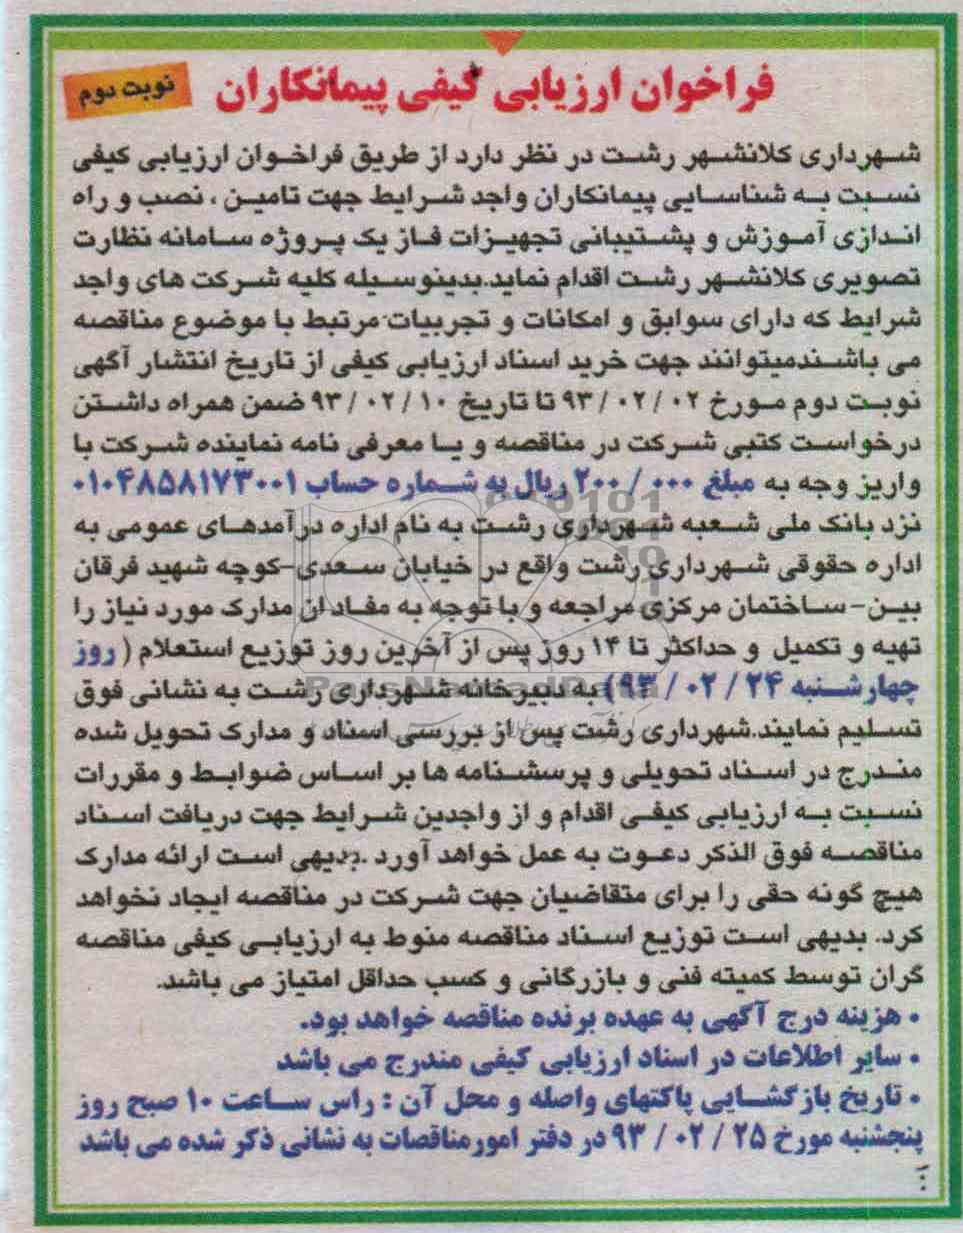 فراخوان ارزیابی کیفی پیمانکاران
نوبت دوم
شهرداری کلانشهر رشت در نظر دارد از طریق فراخوان ارزیابی کیفی
نسبت به شناسایی پیمانکاران واجد شرایط جهت تامین ، نصب و راه
اندازی آموزش و پشتیبانی تجهیزات فاز یک پروژه سامانه نظارت
تصویری کلانشهر رشت اقدام نماید.بدینوسیله کلیه شرکت های واجد
شرایط که دارای سوابق و امکانات و تجربیات مرتبط با موضوع مناقصه
می باشندمیتوانند جهت خرید اسناد ارزیابی کیفی از تاریخ انتشار آگهی
نوبت دوم مورخ ۹۳/۰۲/۰۲ تا تاریخ ۹۳/۰۲/۱۰ ضمن همراه داشتن
درخواست کتبی شرکت در مناقصه و یا معرفی نامه نماینده شرکت با
واریز وجه به مبلغ ۲۰۰/۰۰۰ ریال به شماره حساب ۰۱۰۴۸۵۸۱۷۳۰۰۱
نزد بانک ملی شعبه شهرداری رشت به نام اداره درآمدهای عمومی به
اداره حقوقی شهرداری رشت واقع در خیابان سعدی-کوچه شهید فرقان
بین- ساختمان مرکزی مراجعه و با توجه به مفاد آن مدارک مورد نیاز را
تهیه و تکمیل و حداکثر تا ۱۴ روز پس از آخرین روز توزیع استعلام ( روز
چهارشنبه ۹۳/۰۲/۲۴) به دبیرخانه شهرداری رشت به نشانی فوق
تسلیم نمایند.شهرداری رشت پس از بررسی اسناد و مدارک تحویل شده
مندرج در اسناد تحویلی و پرسشنامه ها بر اساس ضوابط و مقررات
نسبت به ارزیابی کیفی اقدام و از واجدین شرایط جهت دریافت اسناد
مناقصه فوق الذکر دعوت به عمل خواهد آورد .بدیهی است ارائه مدارک
هیچ گونه حقی را برای متقاضیان جهت شرکت در مناقصه ایجاد نخواهد
کرد. بدیهی است توزیع اسناد مناقصه منوط به ارزیابی کیفی مناقصه
گران توسط کمیته فنی و بازرگانی و کسب حداقل امتیاز می باشد.
• هزینه درج آگهی به عهده برنده مناقصه خواهد بود.
• سایر اطلاعات در اسناد ارزیابی کیفی مندرج می باشد
• تاریخ بازگشایی پاکتهای واصله و محل آن : راس ساعت ۱۰ صبح روز
پنجشنبه مورخ ۹۳/۰۲/۲۵ در دفتر امورمناقصات به نشانی ذکر شده می باشد
ParsNamadData